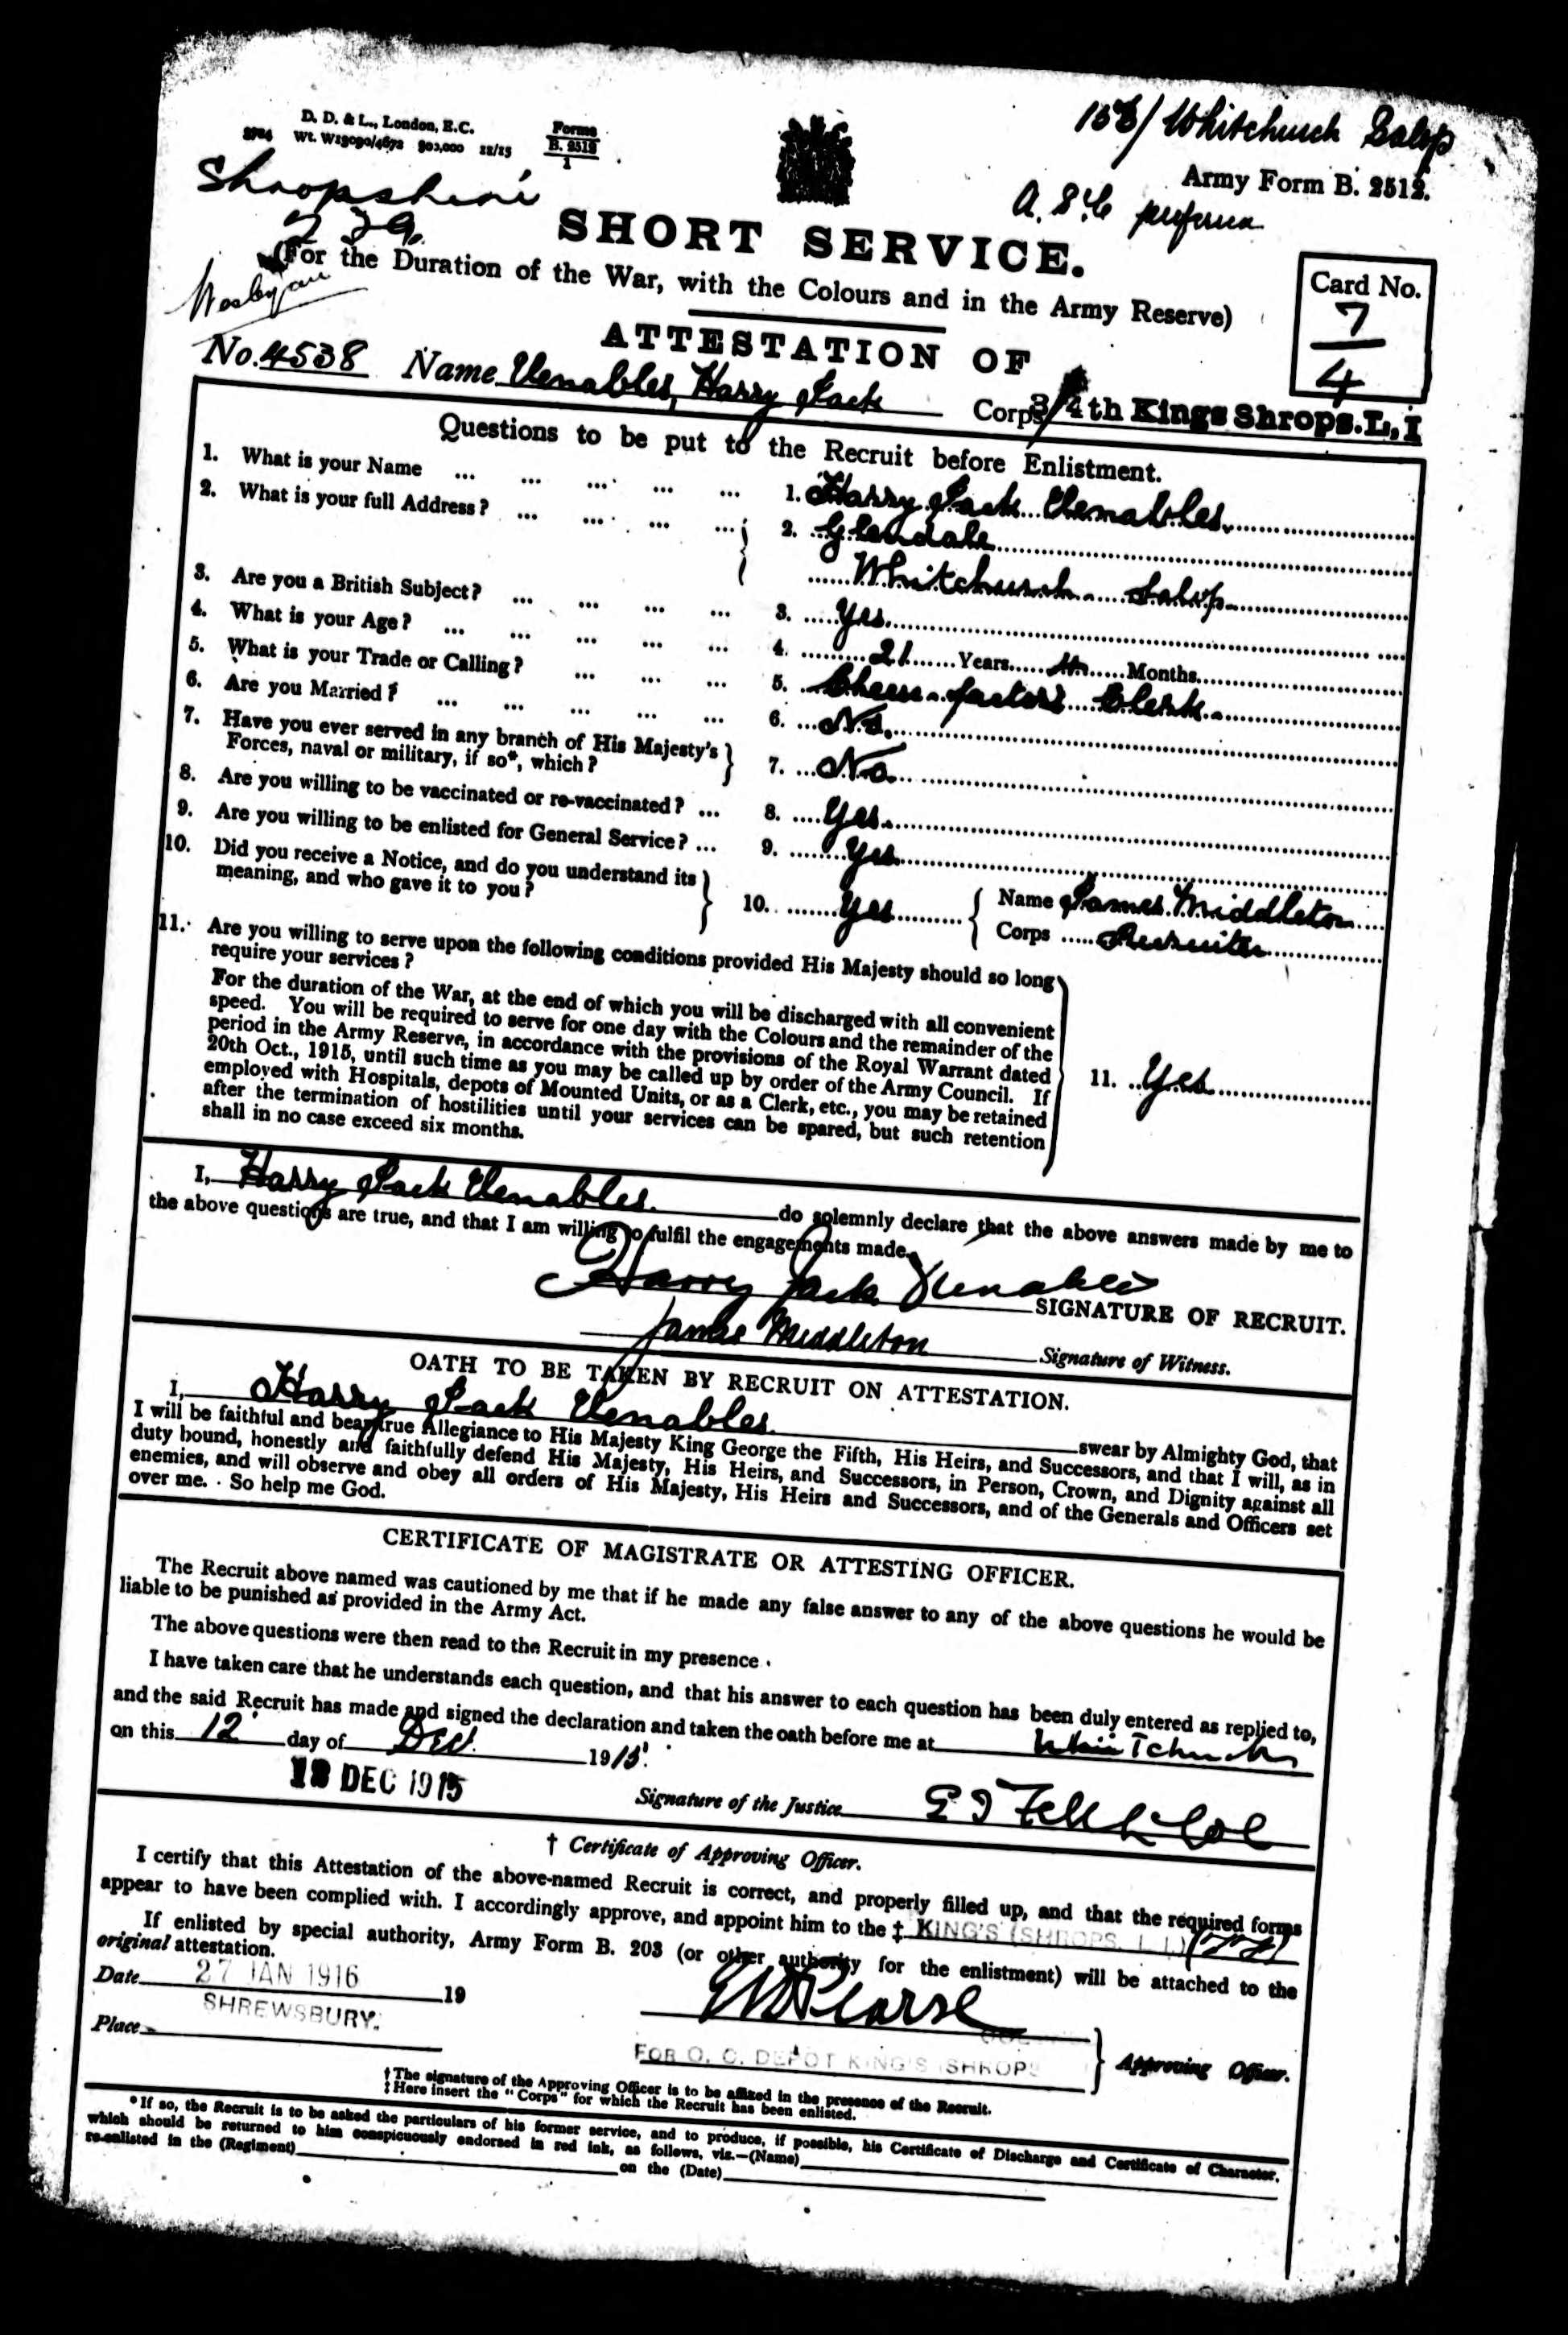 D. D. & L., London, E.C.
Wt. W13090/4672 900,000 12/15
Forms
B. 2512
1
158/ Whitchurch Salop
Army Form B. 2512.
Shropshire
A. S. C preferred
Wesleyan
SHORT SERVICE.
(For the Duration of the War, with the Colours and in the Army Reserve)
Card No.
7
4
ATTESTATION OF
No. 4538 Name Venables, Harry Jack Corps 3/4th Kings Shrops. L. I
Questions to be put to the Recruit before Enlistment.
1. What is your Name ... ... ... ... ... 1. Harry Jack Venables
2. What is your full Address? ... ... ... ... 2. Glendale
Whitchurch Salop
3. Are you a British Subject? ... ... ... ... 3. Yes
4. What is your Age? ... ... ... ... ... 4. 21 Years Months
5. What is your Trade or Calling? ... ... ... 5. Cheese factor's Clerk
6. Are you Married? ... ... ... ... ... 6. No.
7. Have you ever served in any branch of His Majesty's
Forces, naval or military, if so*, which? } 7. No
8. Are you willing to be vaccinated or re-vaccinated? ... 8. Yes
9. Are you willing to be enlisted for General Service? ... 9. Yes
10. Did you receive a Notice, and do you understand its
meaning, and who gave it to you? } 10. Yes { Name James Middleton
Corps Recruiter
11. Are you willing to serve upon the following conditions provided His Majesty should so long
require your services?
For the duration of the War, at the end of which you will be discharged with all convenient
speed. You will be required to serve for one day with the Colours and the remainder of the
period in the Army Reserve, in accordance with the provisions of the Royal Warrant dated
20th Oct., 1915, until such time as you may be called up by order of the Army Council. If
employed with Hospitals, depots of Mounted Units, or as a Clerk, etc., you may be retained
after the termination of hostilities until your services can be spared, but such retention
shall in no case exceed six months.
11. Yes
I, Harry Jack Venables. do solemnly declare that the above answers made by me to
the above questions are true, and that I am willing to fulfil the engagements made.
Harry Jack Venables SIGNATURE OF RECRUIT.
James Middleton Signature of Witness.
OATH TO BE TAKEN BY RECRUIT ON ATTESTATION.
I, Harry Jack Venables. swear by Almighty God, that
I will be faithful and bear true Allegiance to His Majesty King George the Fifth, His Heirs, and Successors, and that I will, as in
duty bound, honestly and faithfully defend His Majesty, His Heirs, and Successors, in Person, Crown, and Dignity against all
enemies, and will observe and obey all orders of His Majesty, His Heirs and Successors, and of the Generals and Officers set
over me. So help me God.
CERTIFICATE OF MAGISTRATE OR ATTESTING OFFICER.
The Recruit above named was cautioned by me that if he made any false answer to any of the above questions he would be
liable to be punished as provided in the Army Act.
The above questions were then read to the Recruit in my presence.
I have taken care that he understands each question, and that his answer to each question has been duly entered as replied to,
and the said Recruit has made and signed the declaration and taken the oath before me at Whitchurch
on this 12 day of Dec. 1915.
DEC 1915
Signature of the Justice
† Certificate of Approving Officer.
I certify that this Attestation of the above-named Recruit is correct, and properly filled up, and that the required forms
appear to have been complied with. I accordingly approve, and appoint him to the ‡ KING'S (SHROPS. L.I.)
If enlisted by special authority, Army Form B. 203 (or other authority for the enlistment) will be attached to the
original attestation.
Date 27 JAN 1916 19
Pearse
Place SHREWSBURY.
FOR O. C. DEPOT KING'S (SHROPS } Approving Officer.
† The signature of the Approving Officer is to be affixed in the presence of the Recruit.
‡ Here insert the "Corps" for which the Recruit has been enlisted.
* If so, the Recruit is to be asked the particulars of his former service, and to produce, if possible, his Certificate of Discharge and Certificate of Character,
which should be returned to him conspicuously endorsed in red ink, as follows, viz.—(Name)
re-enlisted in the (Regiment) on the (Date)